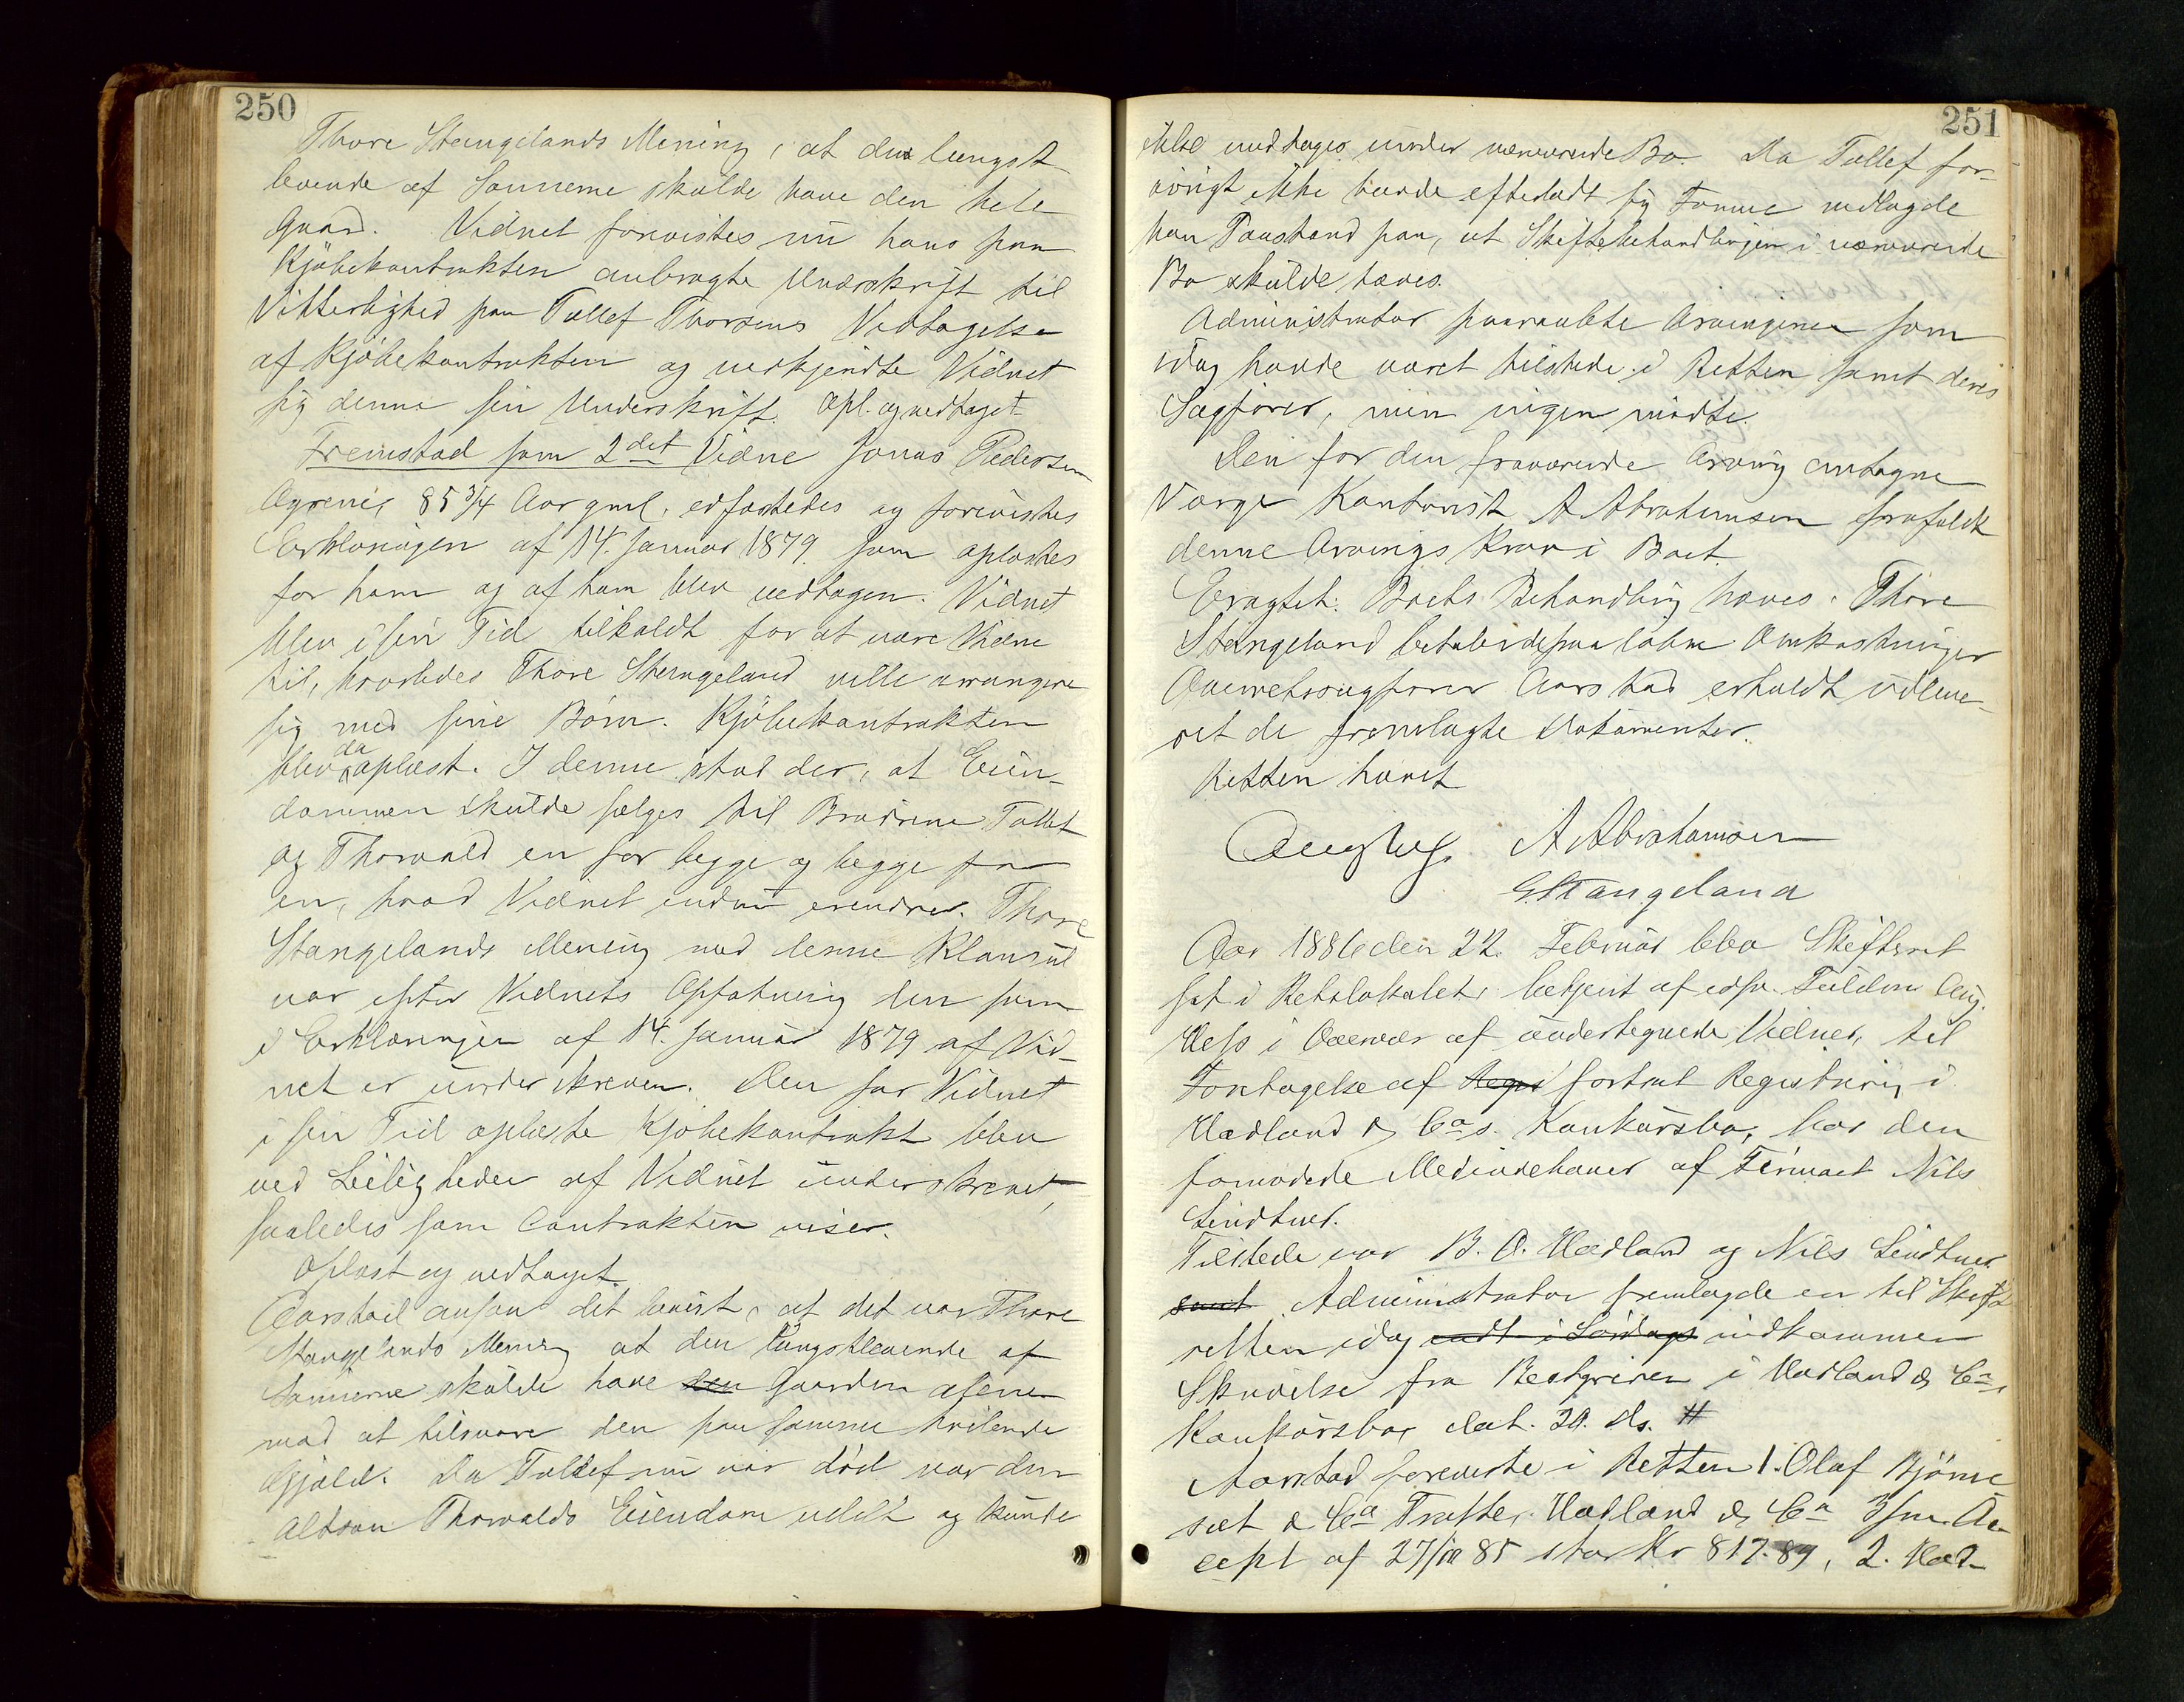 250
Thore Stangelands Mening, at den længst
levende af Sønnerne skulde have den hele
Gaard. Vidnet forevistes nu hans paa
Kjöbekontrakten anbragte Underskrift til
Vitterlighed paa Tollef Thorsens Vedtagelse
af Kjöbekontrakten og vedkjendte Vidnet
sig denne sin Underskrift. Opl. og vedtaget
Fremstod som 2det Vidne Jonas Pedersen
85 3/4 Aar gml. edfæstedes og forevistes
Erklæringen af 14. Januar 1879 som oplæstes
for ham og af ham blev vedtagen. Vidnet
blev i sin Tid tilkaldt for at være Vidne
til, hvorledes Thore Stangeland vilde arrangere
sig med sine Börn. Kjöbekontrakten
blev da oplæst. I denne stod der, at Eien-
dommen skulde sælges til Brödrene Tollef
og Thorvald en for begge og begge for
en, hvad Vidnet endnu erindrer. Thore
Stangelands Mening med denne Klausul
var efter Vidnets Opfatning den som
i Erklæringen af 14. Januar 1879 af Vid-
net er underskreven. Den for Vidnet
i sin Tid oplæste Kjöbekontrakt blev
ved Leiligheden af Vidnet underskrevet,
saaledes som Contrakten viser.
Oplæst og vedtaget.
Aarstad ansaa det bevist, at det var Thore
Stangelands Mening at den længstlevende af
Sønnerne skulde have den Gaarden alene
mod at tilsvare den paa samme hvilende
Gjæld. Da Tollef nu var död var den
altsaa Thorvalds Eiendom udelt og kunde
251
ikke medtages under nærværende Bo. Da Tollef for-
övrigt ikke havde efterladt sig Formue nedlagde
han Paastand paa, at Skiftebehandlingen i nærværende
Bo skulde hæves.
Administrator paaraabte Arvingerne som
idag havde været tilstede i Retten samt deres
Sagförer, men ingen mödte.
Den for den fraværende Arving antagne
Værge Kontorist A Abrahamsen frafaldt
denne Arvings Krav i Boet.
Eragtet: Boets Behandling hæves. Thore
Stangeland betaler de paalöbne Omkostninger
Overretssagförer Aarstad erholdt udleve-
ret de fremlagte Dokumenter.
Retten hævet
A Abrahamsen
G Stangeland
Aar 1886 den 22. Februar blev Skifteret
sat i Retslokalet, betjent af edsv. Fuldm. Aug.
Hess i Overvær af undertegnede Vidner, til
Foretagelse af Regi fortsat Registrering i
Hadland & Cas. Konkursbo, hos den
formodede Medindehaver af Firmaet Nils
Lindtner.
Tilstede var B. O. Hadland og Nils Lindtner
samt Administrator fremlagde en til Skifte-
retten idag indkommen
Skrivelse fra Bestyrer i Hadland & Cas
Konkursbo, dat. 20. ds. #
Aarstad foreviste i Retten 1. Olaf Björne
sæt & Ca Tratte, Hadland & Ca Ac-
cept af 27/10 85 stor Kr 817.89, 2. Had-